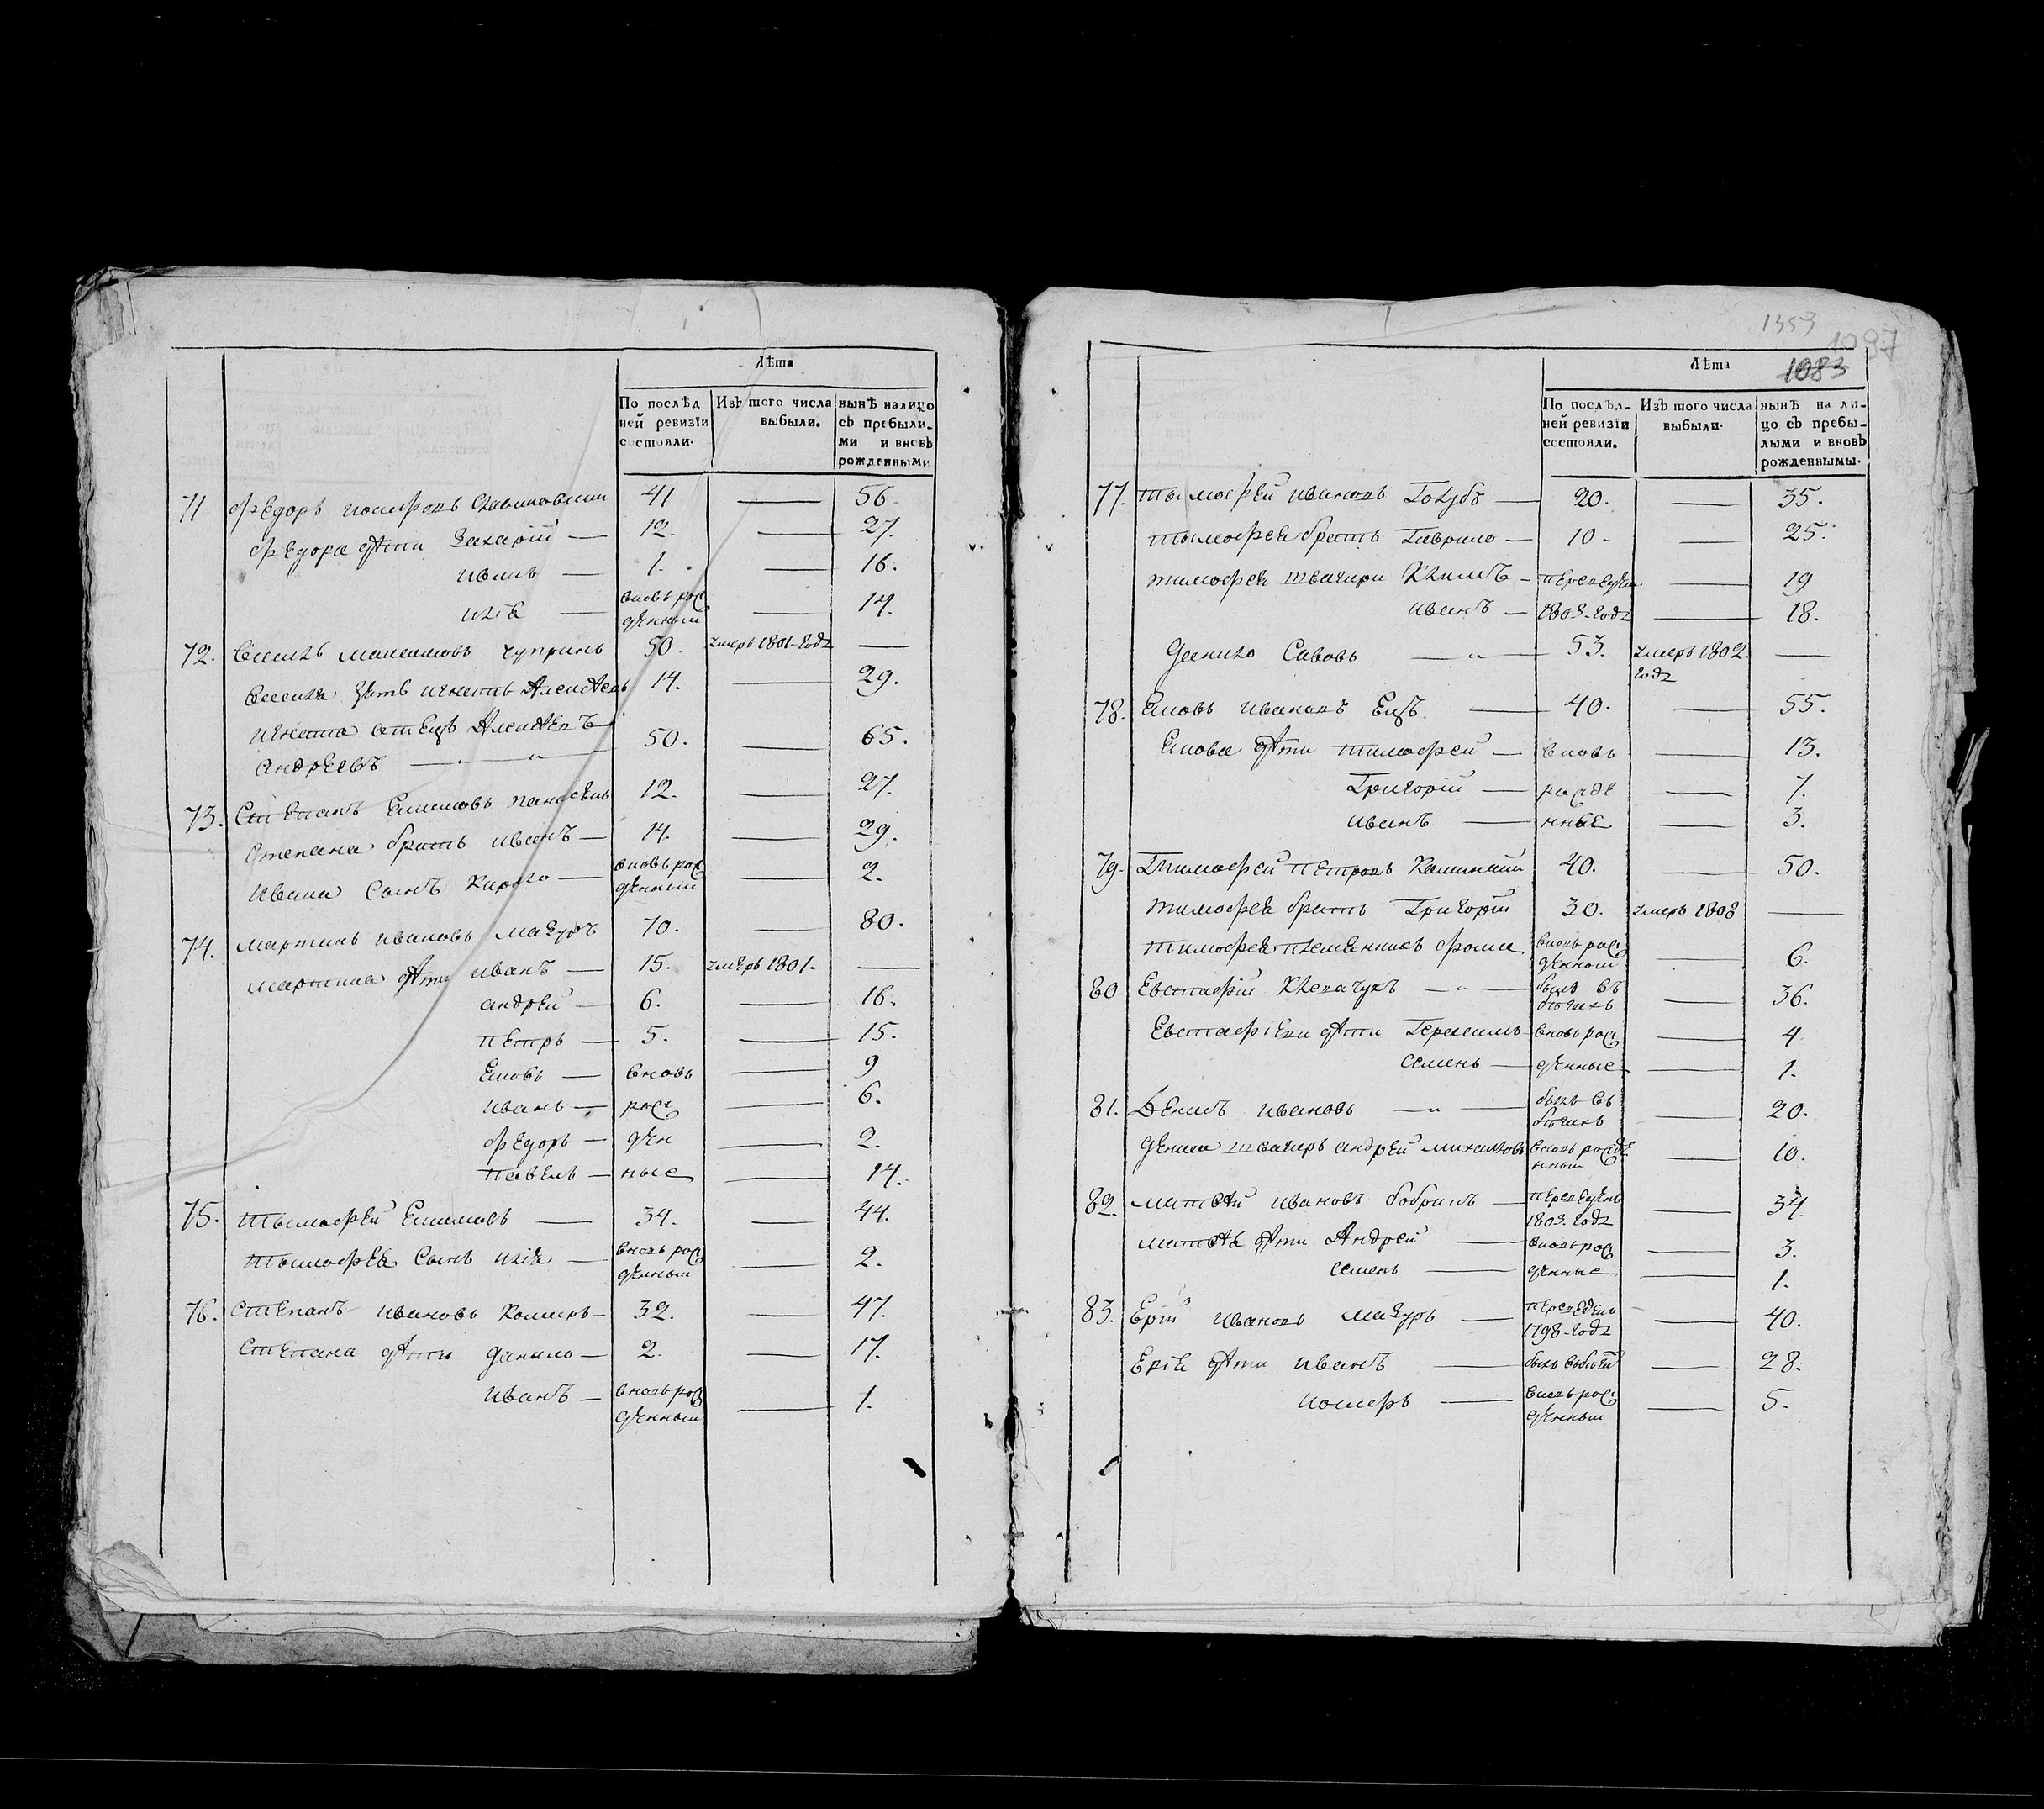 Лѣта
По послѣд Изъ того числа нынѣ налицо
ней ревизіи выбыли. съ пребыли-
состояли. ми и вновь
рожденными
71 Федоръ 41 — 56.
Федора дѣти Захарій — 12. — 27.
иванъ — 1. — 16.
илія — вновь рож
денный — 14.
72. Василь Максимовъ чупринъ 50. умеръ 1801-году —
Василя зять игнатъ Алексѣевъ 14. — 29.
игната отецъ Алексѣй
Андреевъ — „ — „ — 50. — 65.
73. Степанъ Екимовъ 12. — 27.
Степана братъ иванъ — 14. — 29.
ивана сынъ Кирило — вновь рож
денный — 2.
74. мартинъ ивановъ мазуръ 70. — 80.
мартина дѣти иванъ — 15. умеръ 1801. —
андрей — 6. — 16.
петръ — 5. — 15.
Ековъ — вновь — 9
иванъ — рож — 6.
федоръ — ден — 2.
павелъ — ные — 14.
75. Тымофей Екимовъ — 34. — 44.
Тымофея сынъ илія — вновь рож
денный — 2.
76. Степанъ ивановъ — 32. — 47.
Степана дѣти данило — 2. — 17.
иванъ — вновь рож
денный — 1.
1353
1097
1083
Лѣта
По послѣд- Изъ того числа нынѣ на ли-
ней ревизіи выбыли. цо съ пребы-
состояли. лыми и вновь
рожденнымы.
77. Тымофей ивановъ Голубъ — 20. — 35.
тымофея братъ Гаврило — 10 - — 25.
тимофея швагри Климъ — переведен. — 19
иванъ — 1803-году — 18.
Савовъ — „ — 53. умеръ 1802. —
году
78. Ековъ ивановъ — 40. — 55.
Екова дѣти тимофей — вновь — 13.
Григорій — рожде — 7.
иванъ — нные — 3.
79. Тимофей петровъ 40. — 50.
тимофея братъ Григорій 30. умеръ 1808 —
тимофея племенникъ фома вновь рож
денный — 6.
80 Евстафій — „ — былъ въ
бѣгахъ — 36.
Евстафіеви дѣти Герасимъ вновь рож — 4
семенъ — денные — 1.
81. Денисъ ивановъ — „ — былъ въ
бѣгахъ — 20.
дениса швагеръ андрей михайловъ вновь рожде
нный — 10.
82. матвѣй ивановъ бобрикъ — переведенъ
1803-году — 34.
матвѣя дѣти Андрей — вновь рож — 3.
семенъ — денные — 1.
83. Ерій ивановъ мазуръ — переведенъ
1798-году — 40.
Ерія дѣти иванъ — — 28.
— вновь рож
денный — 5.